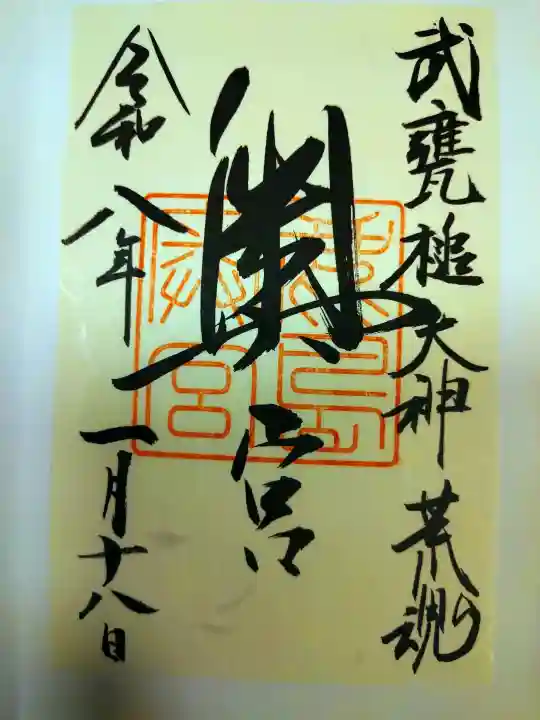 武甕槌大神 荒魂
奥宮
鹿島
神宮
令和八年一月十八日